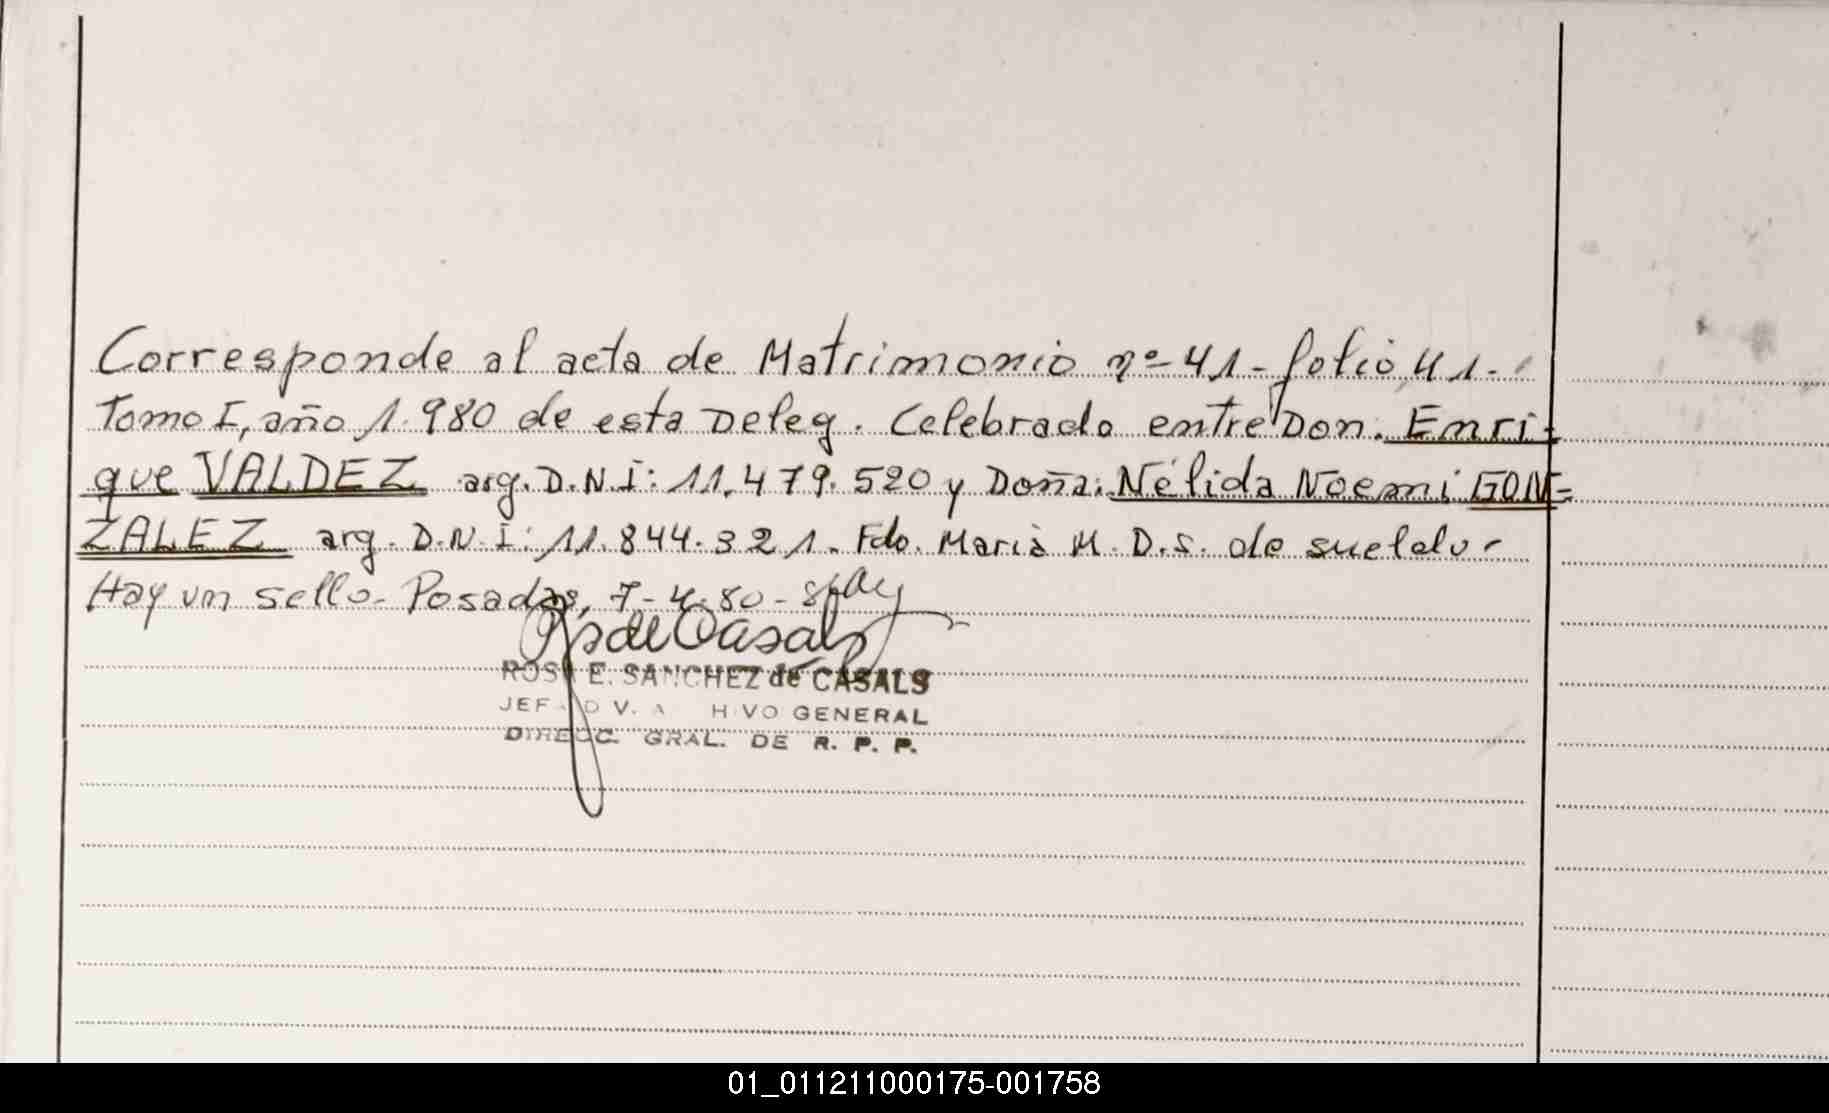 Corresponde al acta de Matrimonio nº 41 - folio 41 -
Tomo I, año 1.980 de esta Deleg. Celebrado entre Don. Enri-
que VALDEZ arg. D.N.I: 11.479.520 y Doña. Nélida Noemi GON=
ZALEZ arg. D.N.I: 11.844.321. Fdo. Maria M. D. S. de sueldo -
Hay un sello - Posadas, 7 - 4 - 80 -
de Casals
ROSA E. SANCHEZ de CASALS
JEF DIV. A HIVO GENERAL
DIRECC. GRAL. DE R. P. P.
01_011211000175-001758